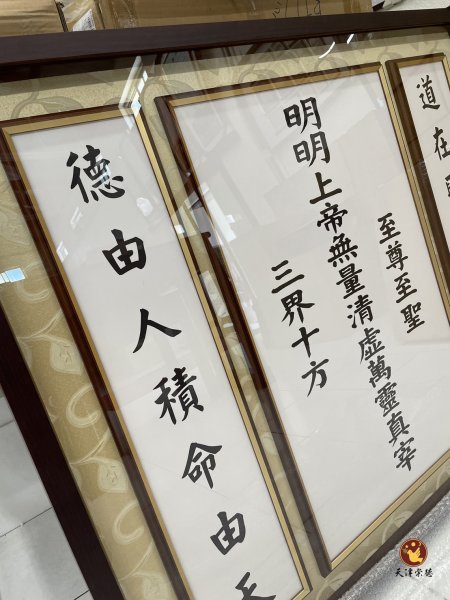 道在
至尊至聖
明明上帝無量清虛萬靈真宰
三界十方
德由人積命由
天津崇德